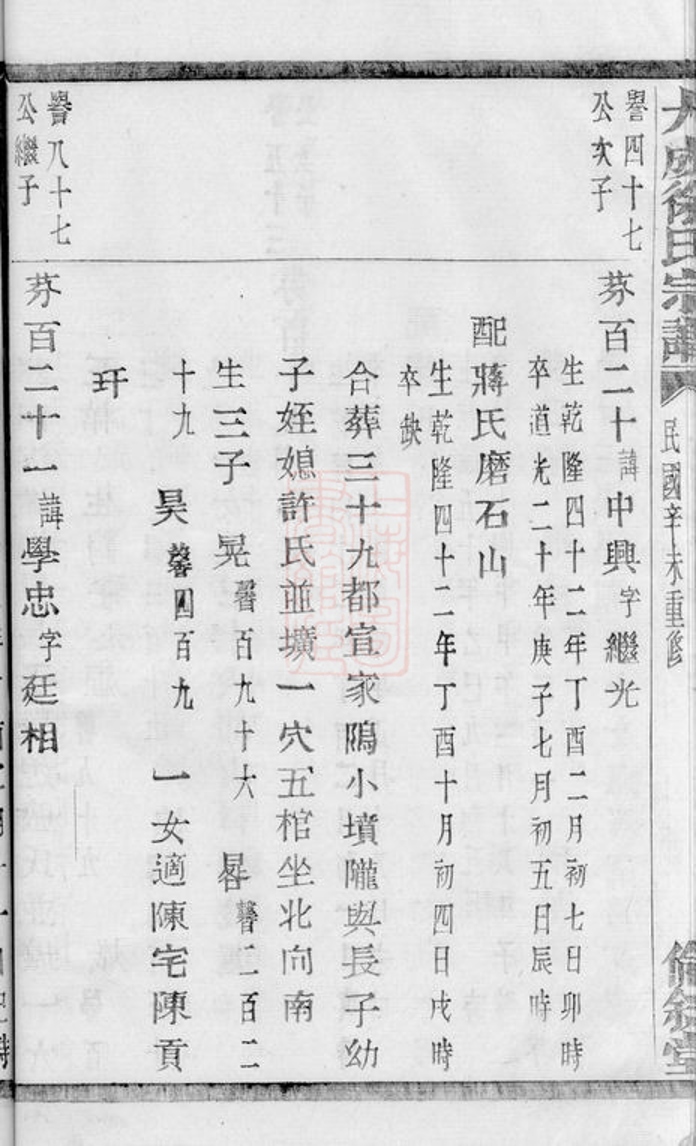 大成徐氏宗譜 民國辛未重修
譽四十七
公次子
芬百二十諱中興字繼光
生乾隆四十二年丁酉二月初七日卯時
卒道光二十年庚子七月初五日辰時
配蔣氏磨石山
生乾隆四十二年丁酉十月初四日戌時
卒缺
合葬三十九都宣家隖小墳隴與長子幼
子姪媳許氏並壙一穴五棺坐北向南
生三子 晃馨百九十六 晷馨二百二
十九 昊馨四百九 一女適陳宅陳貢
玕
譽八十七
公繼子
芬百二十一諱學忠字廷相